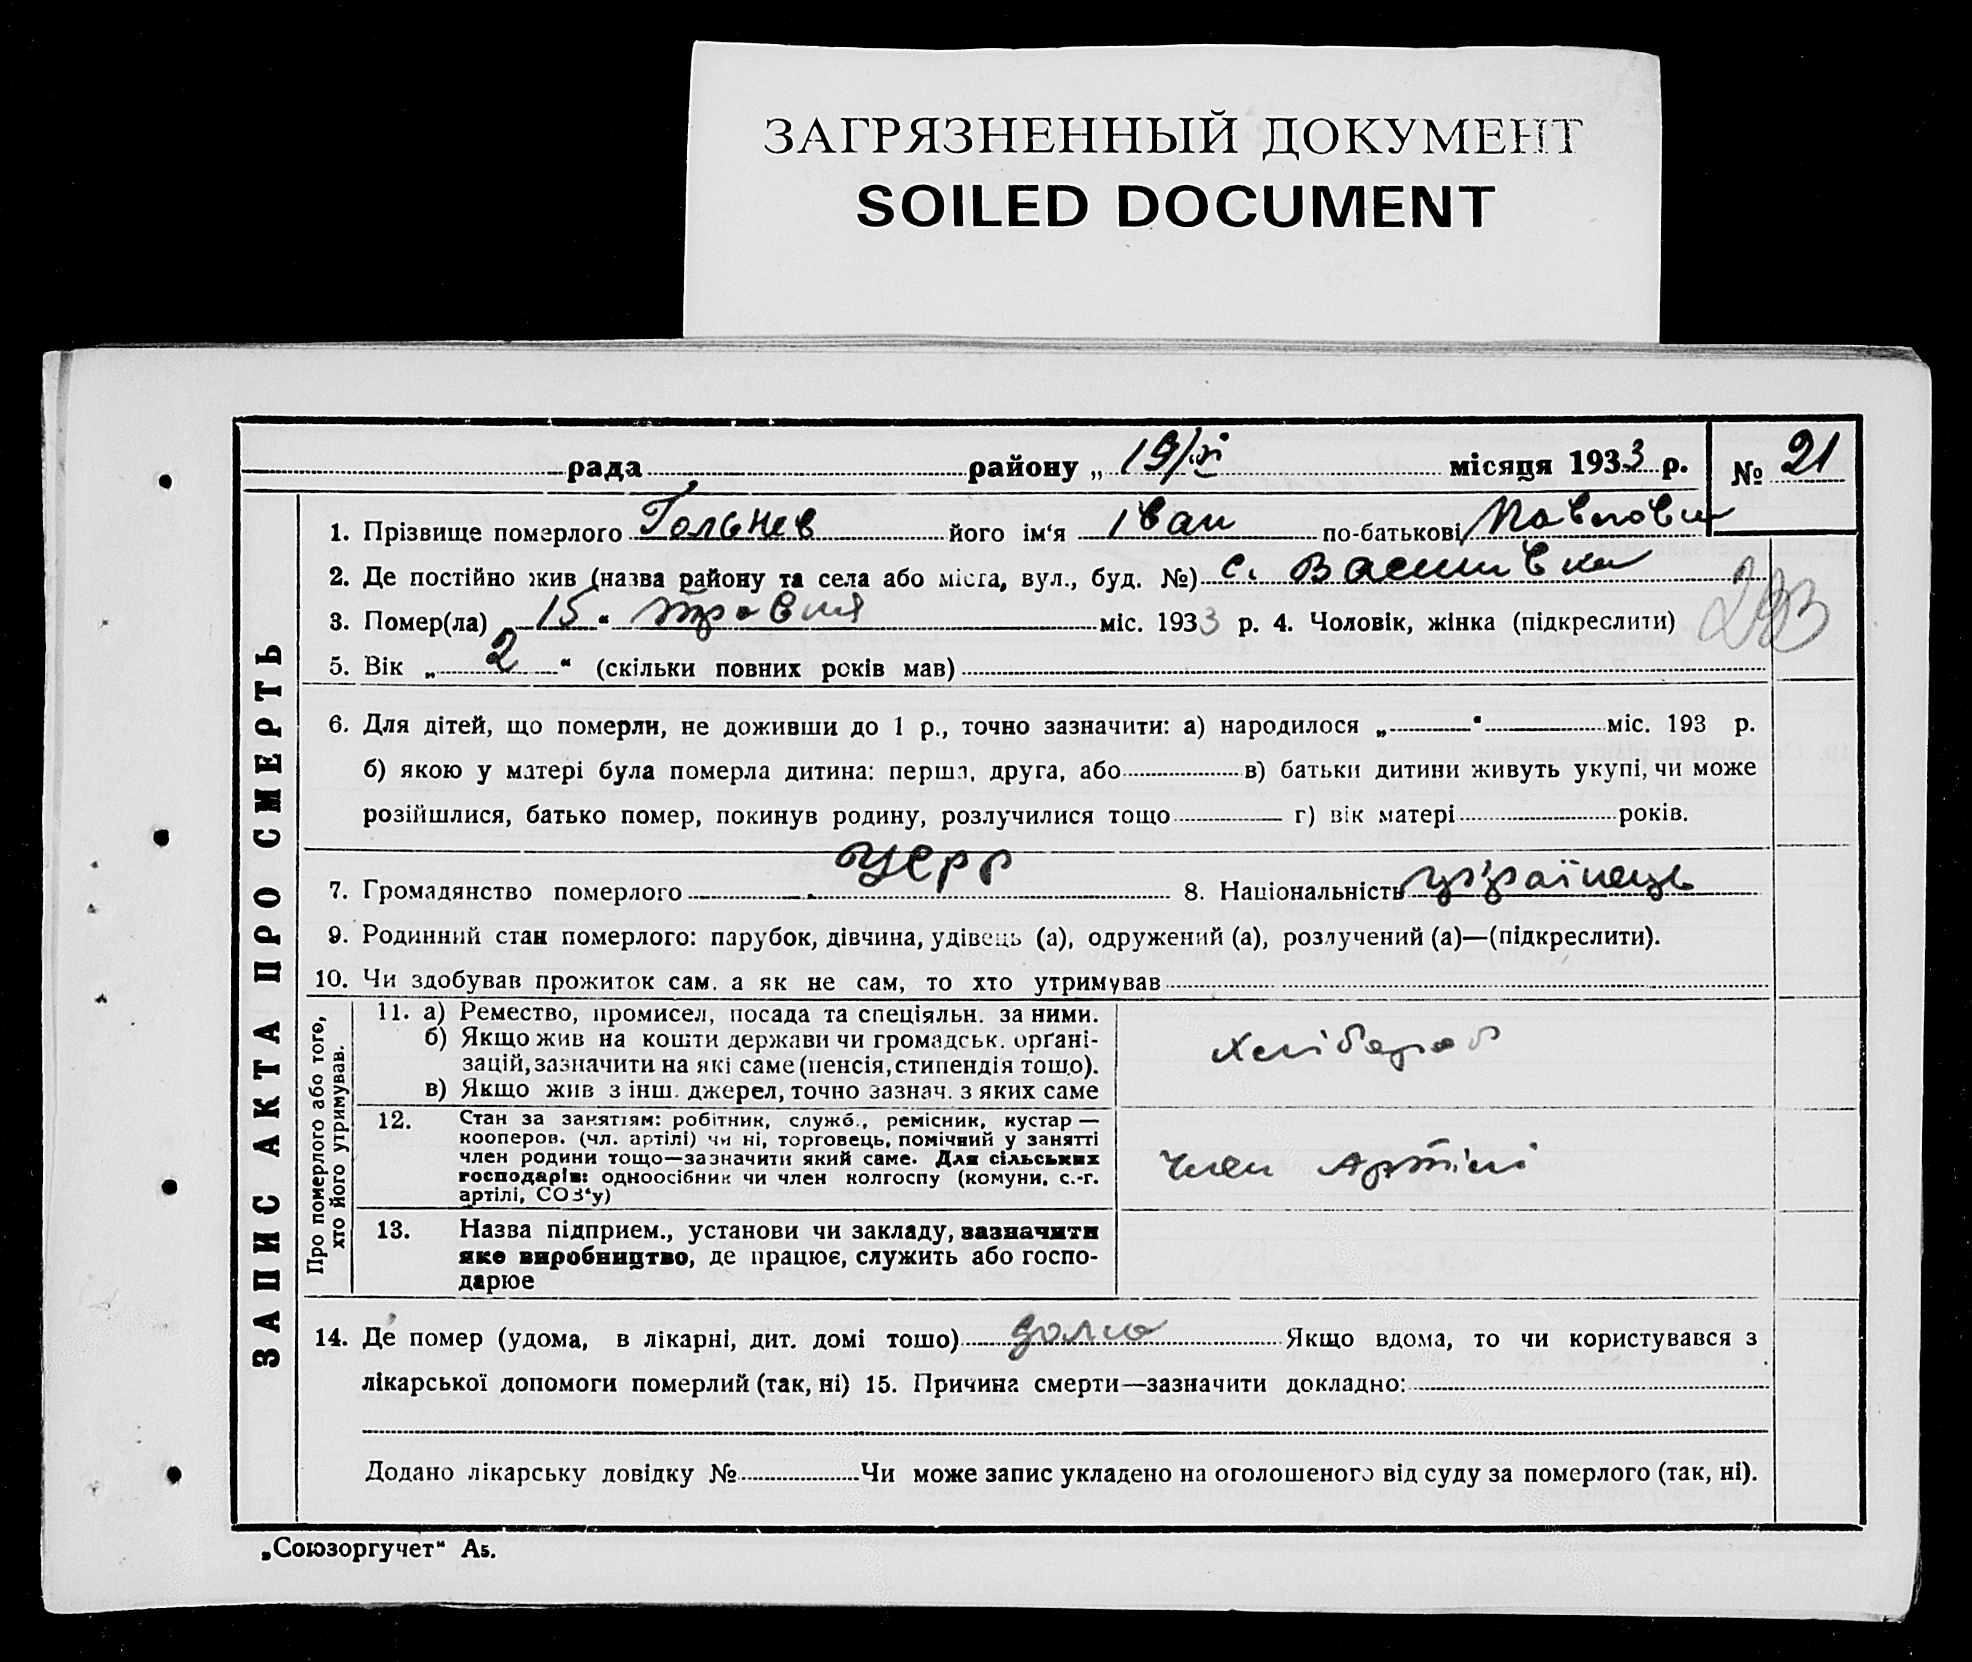 ЗАГРЯЗНЕННЫЙ ДОКУМЕНТ
SOILED DOCUMENT
рада районy „ 19/XI місяця 1933 р. № 21
ЗАПИС АКТА ПРО СМЕРТЬ
1. Прізвище померлого Гольнев його ім‘я Іван по-батькові Павлович
2. Де постійно жив (назва району та села або міста, вул., буд. №) с. Василівка
3. Помер(ла) „ 15 “ травня міс. 1933 р. 4. Чоловік, жінка (підкреслити)
5. Вік „ 2 “ (скільки повних років мав)
6. Для дітей, що померли, не доживши до 1 р., точно зазначити: а) народилося „ “ міс. 193 р.
б) якою у матері була померла дитина: перша, друга, або в) батьки дитини живуть укупі, чи може
розійшлися, батько помер, покинув родину, розлучилися тощо г) вік матері років.
7. Громадянство померлого УСРР 8. Національність українець
9. Родинний стан померлого: парубок, дівчина, удівець (а), одружений (а), розлучений (а)—(підкреслити).
10. Чи здобував прожиток сам, а як не сам, то хто утримував
Про померлого або того,
хто його утримував.
11. а) Ремество, промисел, посада та спеціяльн. за ними.
б) Якщо жив на кошти держави чи громадськ. орґані-
зацій, зазначити на які саме (пенсія, стипендія тощо).
в) Якщо жив з інш. джерел, точно зазнач. з яких саме
Хлібороб
12. Стан за заняттям: робітник, служб., ремісник, кустар —
кооперов. (чл. артілі) чи ні, торговець, помічний у занятті
член родини тощо—зазначити який саме. Для сільських
господарів: одноосібник чи член колгоспу (комуни, с.-г.
артілі, СОЗ‘у)
член Артілі
13. Назва підприєм., установи чи закладу, зазначити
яке виробництво, де працює, служить або госпо-
дарює
14. Де помер (удома, в лікарні, дит. домі тощо) дома Якщо вдома, то чи користувався з
лікарської допомоги померлий (так, ні) 15. Причина смерти—зазначити докладно:
Додано лікарську довідку № Чи може запис укладено на оголошеного від суду за померлого (так, ні).
„Союзоргучет“ А5.